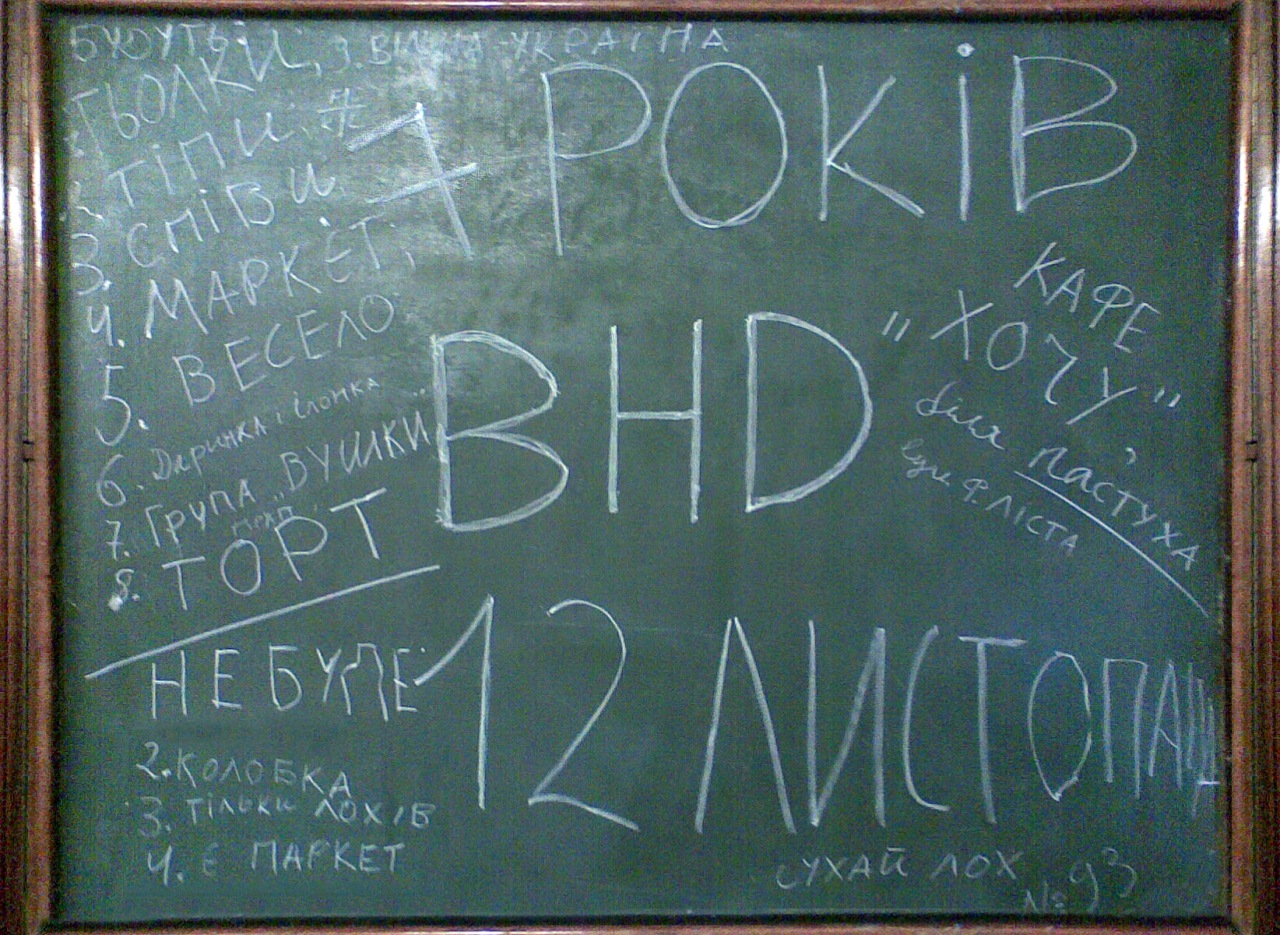 БУДУТЬ:
З. ВІЛЬНА УКРАЇНА
1. ТЬОЛКИ,
2. ТІПИ.
3. СПІВИ
4. МАРКЕТ,
5. ВЕСЕЛО
6. Даринка і Ілонка
7. ГРУПА "ВУШКИ"
8. ТОРТ
7 РОКІВ
ВНD
12 ЛИСТОПАД
КАФЕ
"ХОЧУ"
біля пас'туха
вули Ф. ЛІСТА
НЕ БУДЕ
2. КОЛОБКА
3. ТІЛЬКИ ЛОХІВ
4. Є ПАРКЕТ
СУХАЙ ЛОХ
№ 93